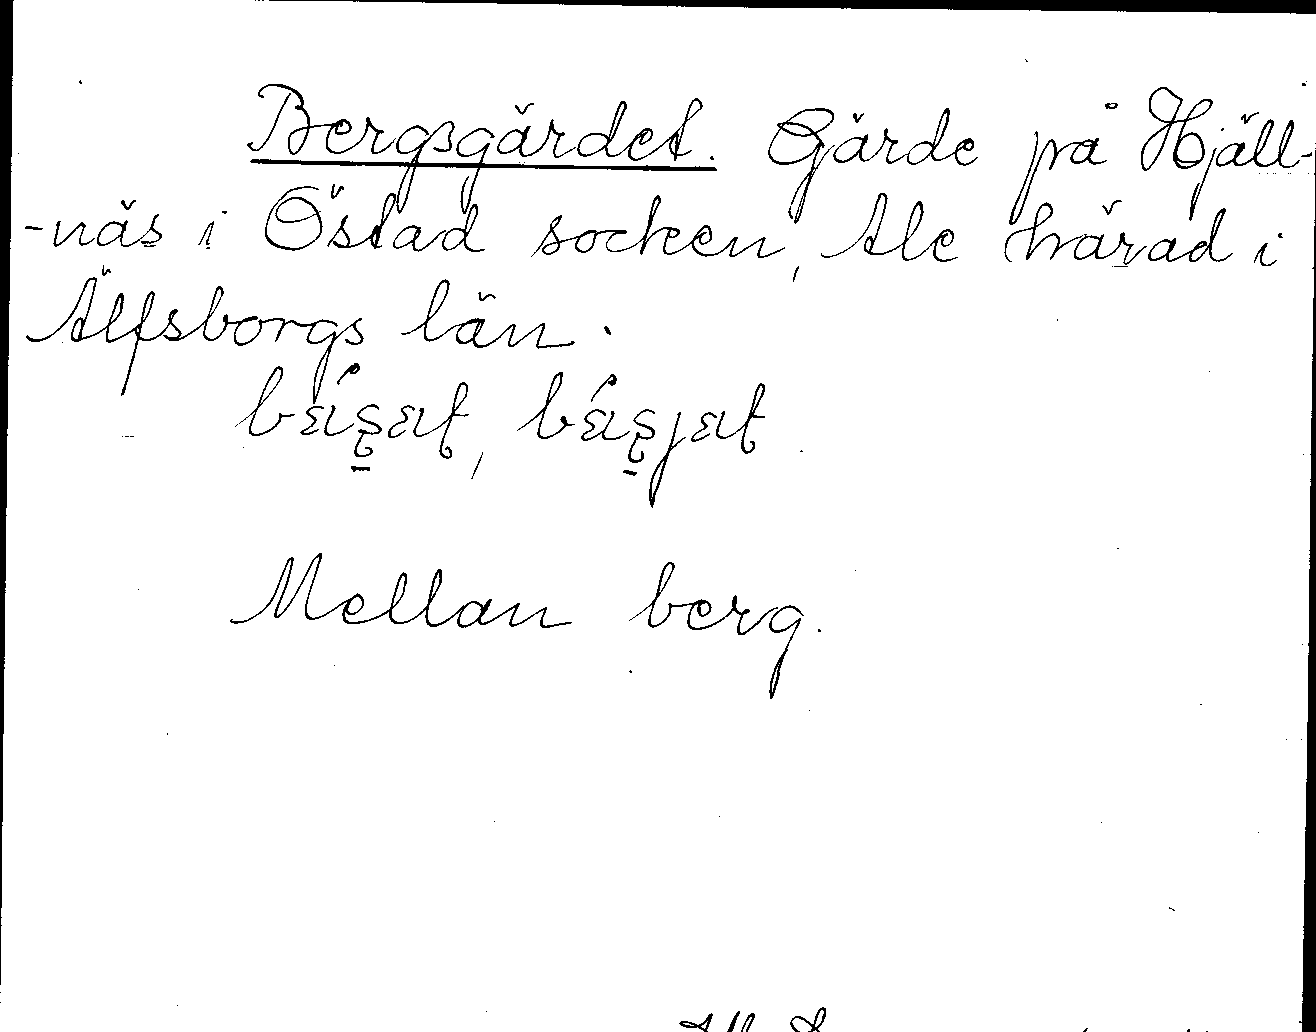 Bergsgärdet. Gärde på Hjäll-
-näs i Östad socken, Ale härad i
Älfsborgs län.
Mellan berg.